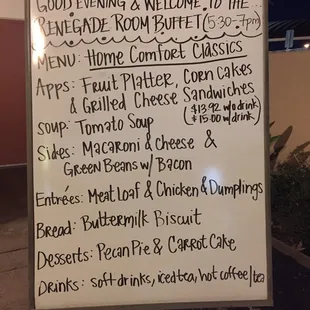 GOOD EVENING & WELCOME TO THE
RENEGADE ROOM BUFFET (5:30-7pm)
MENU: Home Comfort Classics
Apps: Fruit Platter, Corn Cakes
& Grilled Cheese Sandwiches
($13.92 w/o drink
$15.00 w/ drink)
Soup: Tomato Soup
Sides: Macaroni & Cheese &
Green Beans w/ Bacon
Entrées: Meat Loaf & Chicken & Dumplings
Bread: Buttermilk Biscuit
Desserts: Pecan Pie & Carrot Cake
Drinks: soft drinks, iced tea, hot coffee/tea